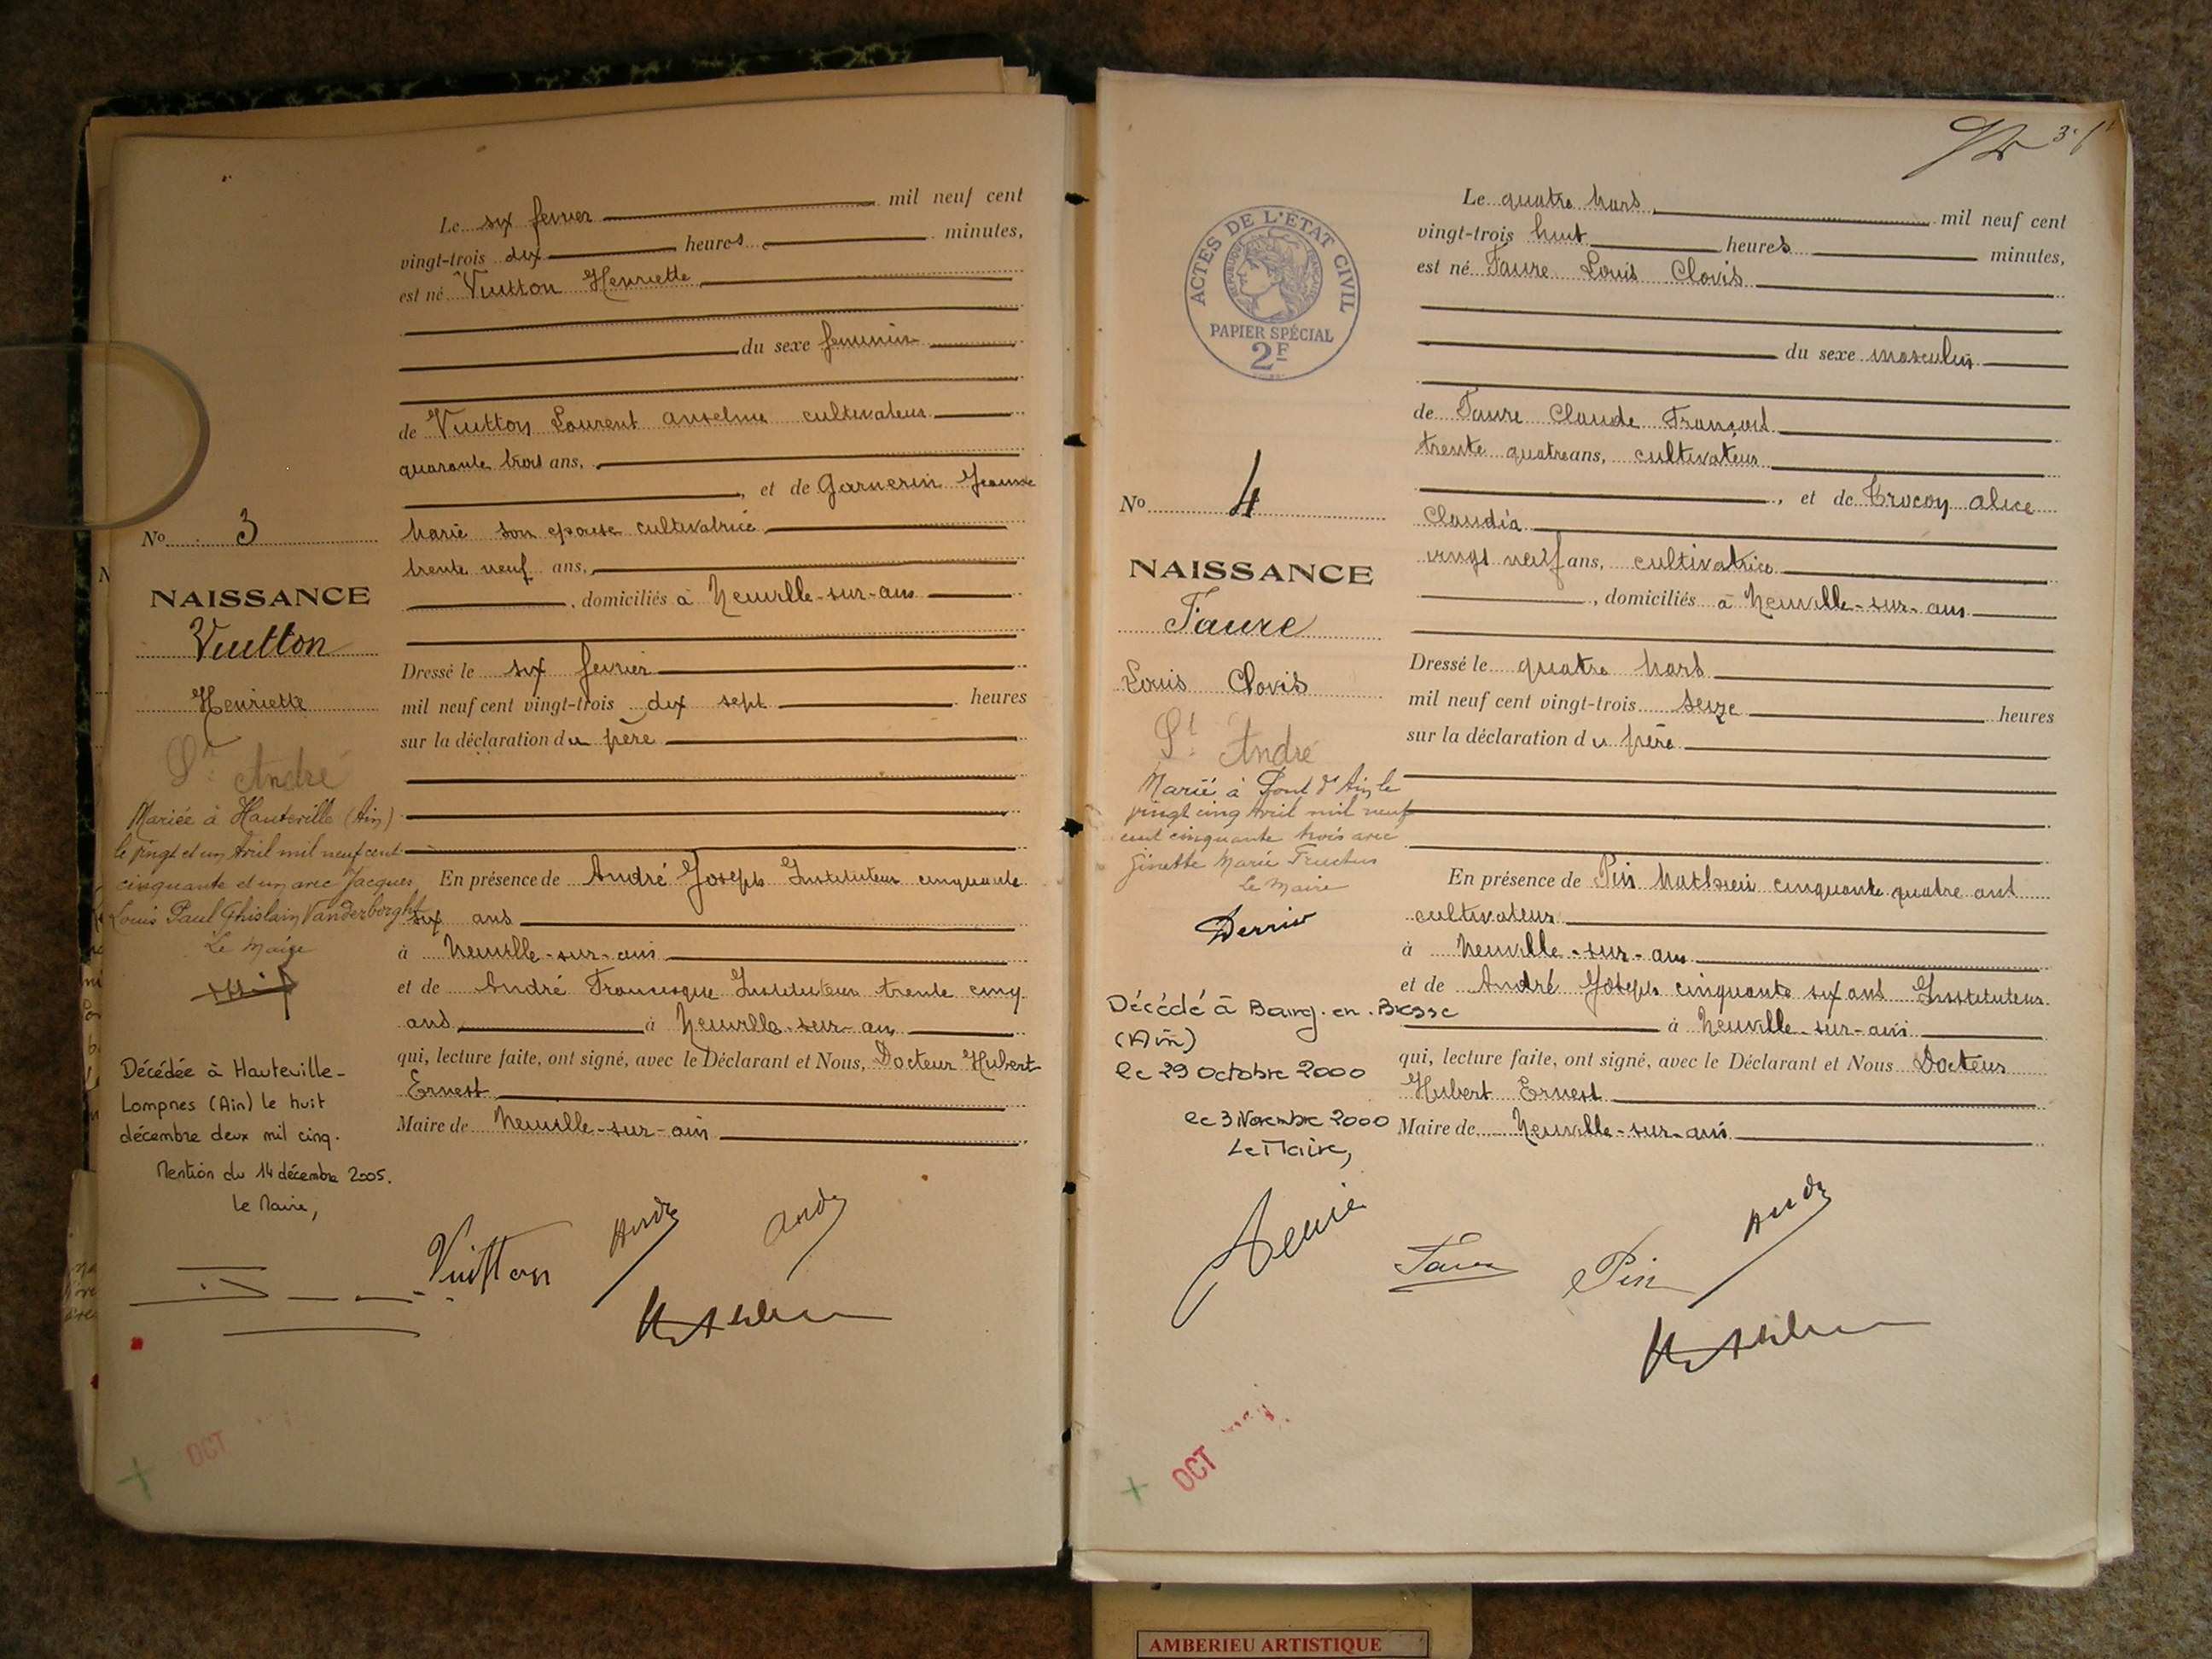 Le six fevrier mil neuf cent
vingt-trois dix heures minutes,
est né Vuitton Henriette
du sexe feminin
de Vuitton Laurent Anselme cultivateur
quarante trois ans,
, et de Garnerin Jeanne
Marie son epouse cultivatrice
trente neuf ans,
, domiciliés à Neuville-sur-ain
Dressé le six fevrier
mil neuf cent vingt-trois dix sept heures
sur la déclaration du père
En présence de André Joseph Instituteur cinquante
six ans
à Neuville-sur-ain
et de André Francisque Instituteur trente cinq
ans à Neuville-sur-ain
qui, lecture faite, ont signé, avec le Déclarant et Nous, Docteur Hubert
Ernest
Maire de Neuville-sur-ain
No 3
NAISSANCE
Vuitton
Henriette
St André
Mariée à Hauteville (Ain)
le vingt et un Avril mil neuf cent
cinquante et un avec Jacques
Louis Paul Ghislain Vanderborght
Le Maire
Décédée à Hauteville-
Lompnes (Ain) le huit
décembre deux mil cinq.
Mention du 14 décembre 2005.
Le Maire,
Vuitton
André
André
OCT
Le quatre Mars mil neuf cent
vingt-trois huit heures minutes,
est né Faure Louis Clovis
du sexe masculin
de Faure Claude François
trente quatre ans, cultivateur
, et de Trocon Alice
Claudia
vingt neuf ans, cultivatrice
, domiciliés à Neuville-sur-ain
Dressé le quatre Mars
mil neuf cent vingt-trois seize heures
sur la déclaration du père
En présence de Pin Mathieu cinquante quatre ans
cultivateur
à Neuville-sur-ain
et de André Joseph cinquante six ans Instituteur
à Neuville-sur-ain
qui, lecture faite, ont signé, avec le Déclarant et Nous Docteur
Hubert Ernest
Maire de Neuville-sur-ain
ACTES DE L'ETAT CIVIL
REPUBLIQUE FRANÇAISE
PAPIER SPÉCIAL
2F
No 4
NAISSANCE
Faure
Louis Clovis
St André
Marié à Pont d'Ain le
vingt cinq Avril mil neuf
cent cinquante trois avec
Ginette Marie Fructus
Le Maire
Décédé à Bourg-en-Bresse
(Ain)
le 29 octobre 2000
le 3 Novembre 2000
Le Maire,
Faure
Pin
André
OCT
AMBERIEU ARTISTIQUE